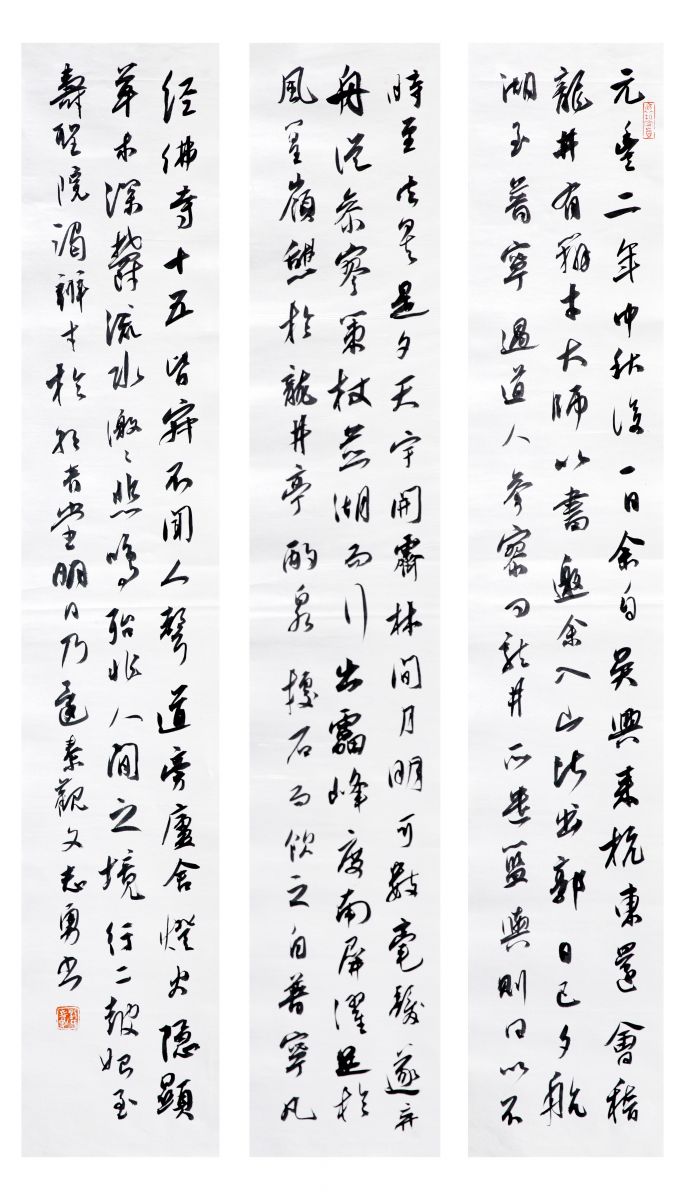 元豐二年中秋後一日余自吳興来杭東還會稽
龍井有辨才大師以書邀余入山比出郭日已夕航
湖至普寧遇道人參寥問龍井所遣籃輿則曰以不
時至去矣是夕天宇開霽林間月明可數毫髮遂弃
舟從參寥策杖並湖而行出雷峰度南屏濯足於
風篁嶺憩於龍井亭酌泉據石而飲之自普寧凡
经佛寺十五皆寂不聞人聲道旁廬舍燈火隱顯
草木深鬱流水激〻悲鳴殆非人間之境行二鼓始至
壽聖院謁辨才於朝音堂明日乃還秦觀文志勇书